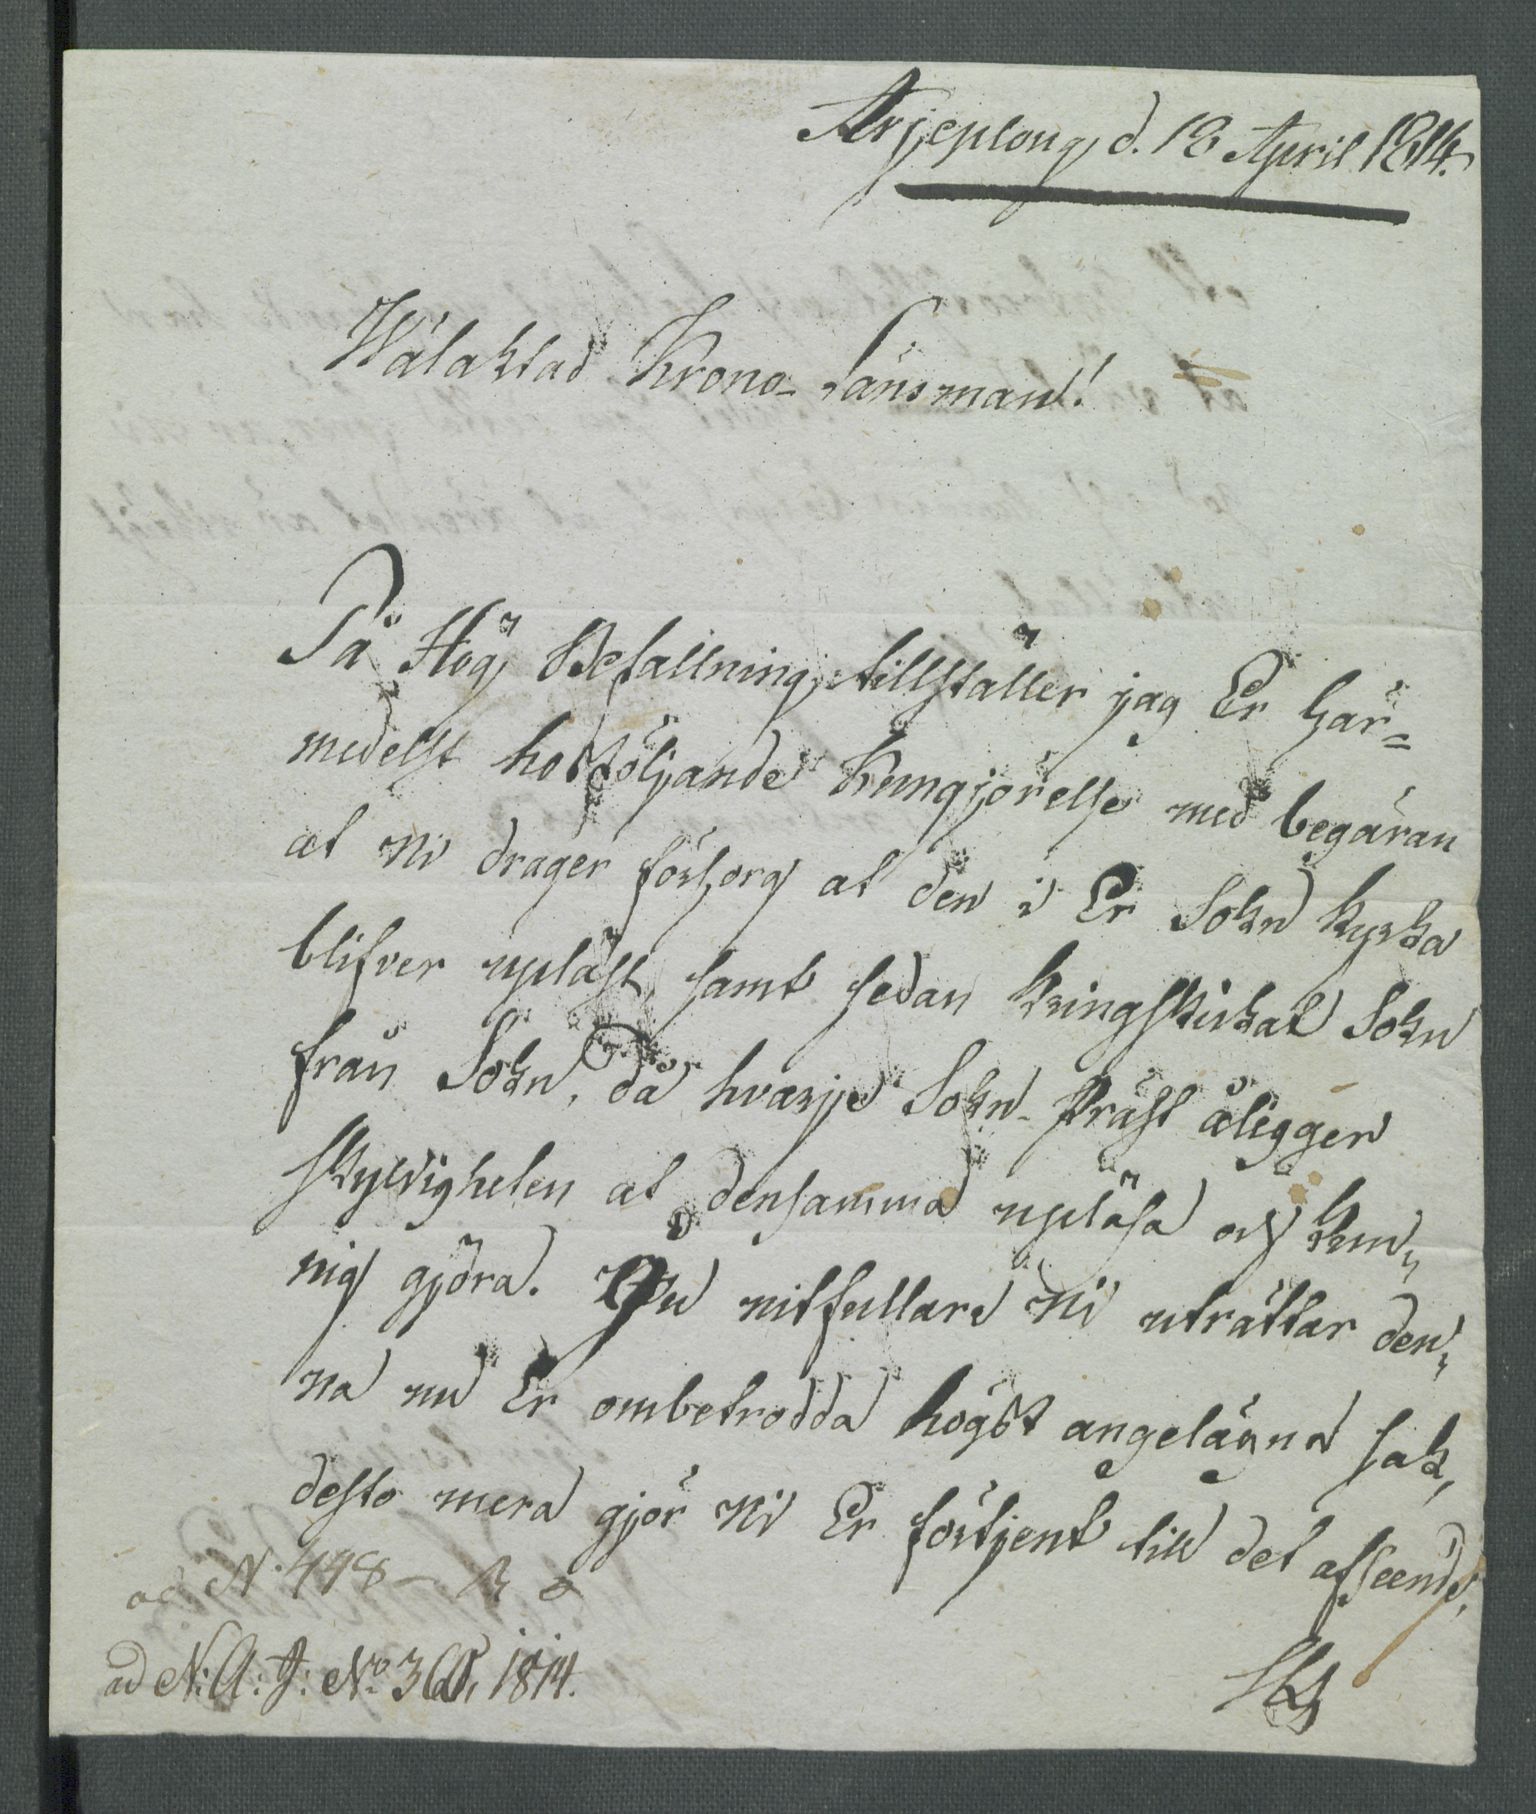 Arjeplong d. 18 April 1814.
Wälaktad Krono-Länsman!
På Hög Befallning tillställer jag Er här=
medelst hosföljande Kungjörelse med begäran
at Ni drager försorg at den i Er Sokn kyrka
blifver upläst, samt sedan kringskickat Sokn
från Sokn, då hvarje Sokn-Präst åligger
skyldigheten at densamma upläsa och kun„
nig gjöra. Ju nitfullare Ni uträttar den„
na nu Er ombetrodda högst angelägna sak,
desto mera gjör Ni Er förtjent till det afseende,
ad N. 448 –
ad N: A: J: No 360, 1814.